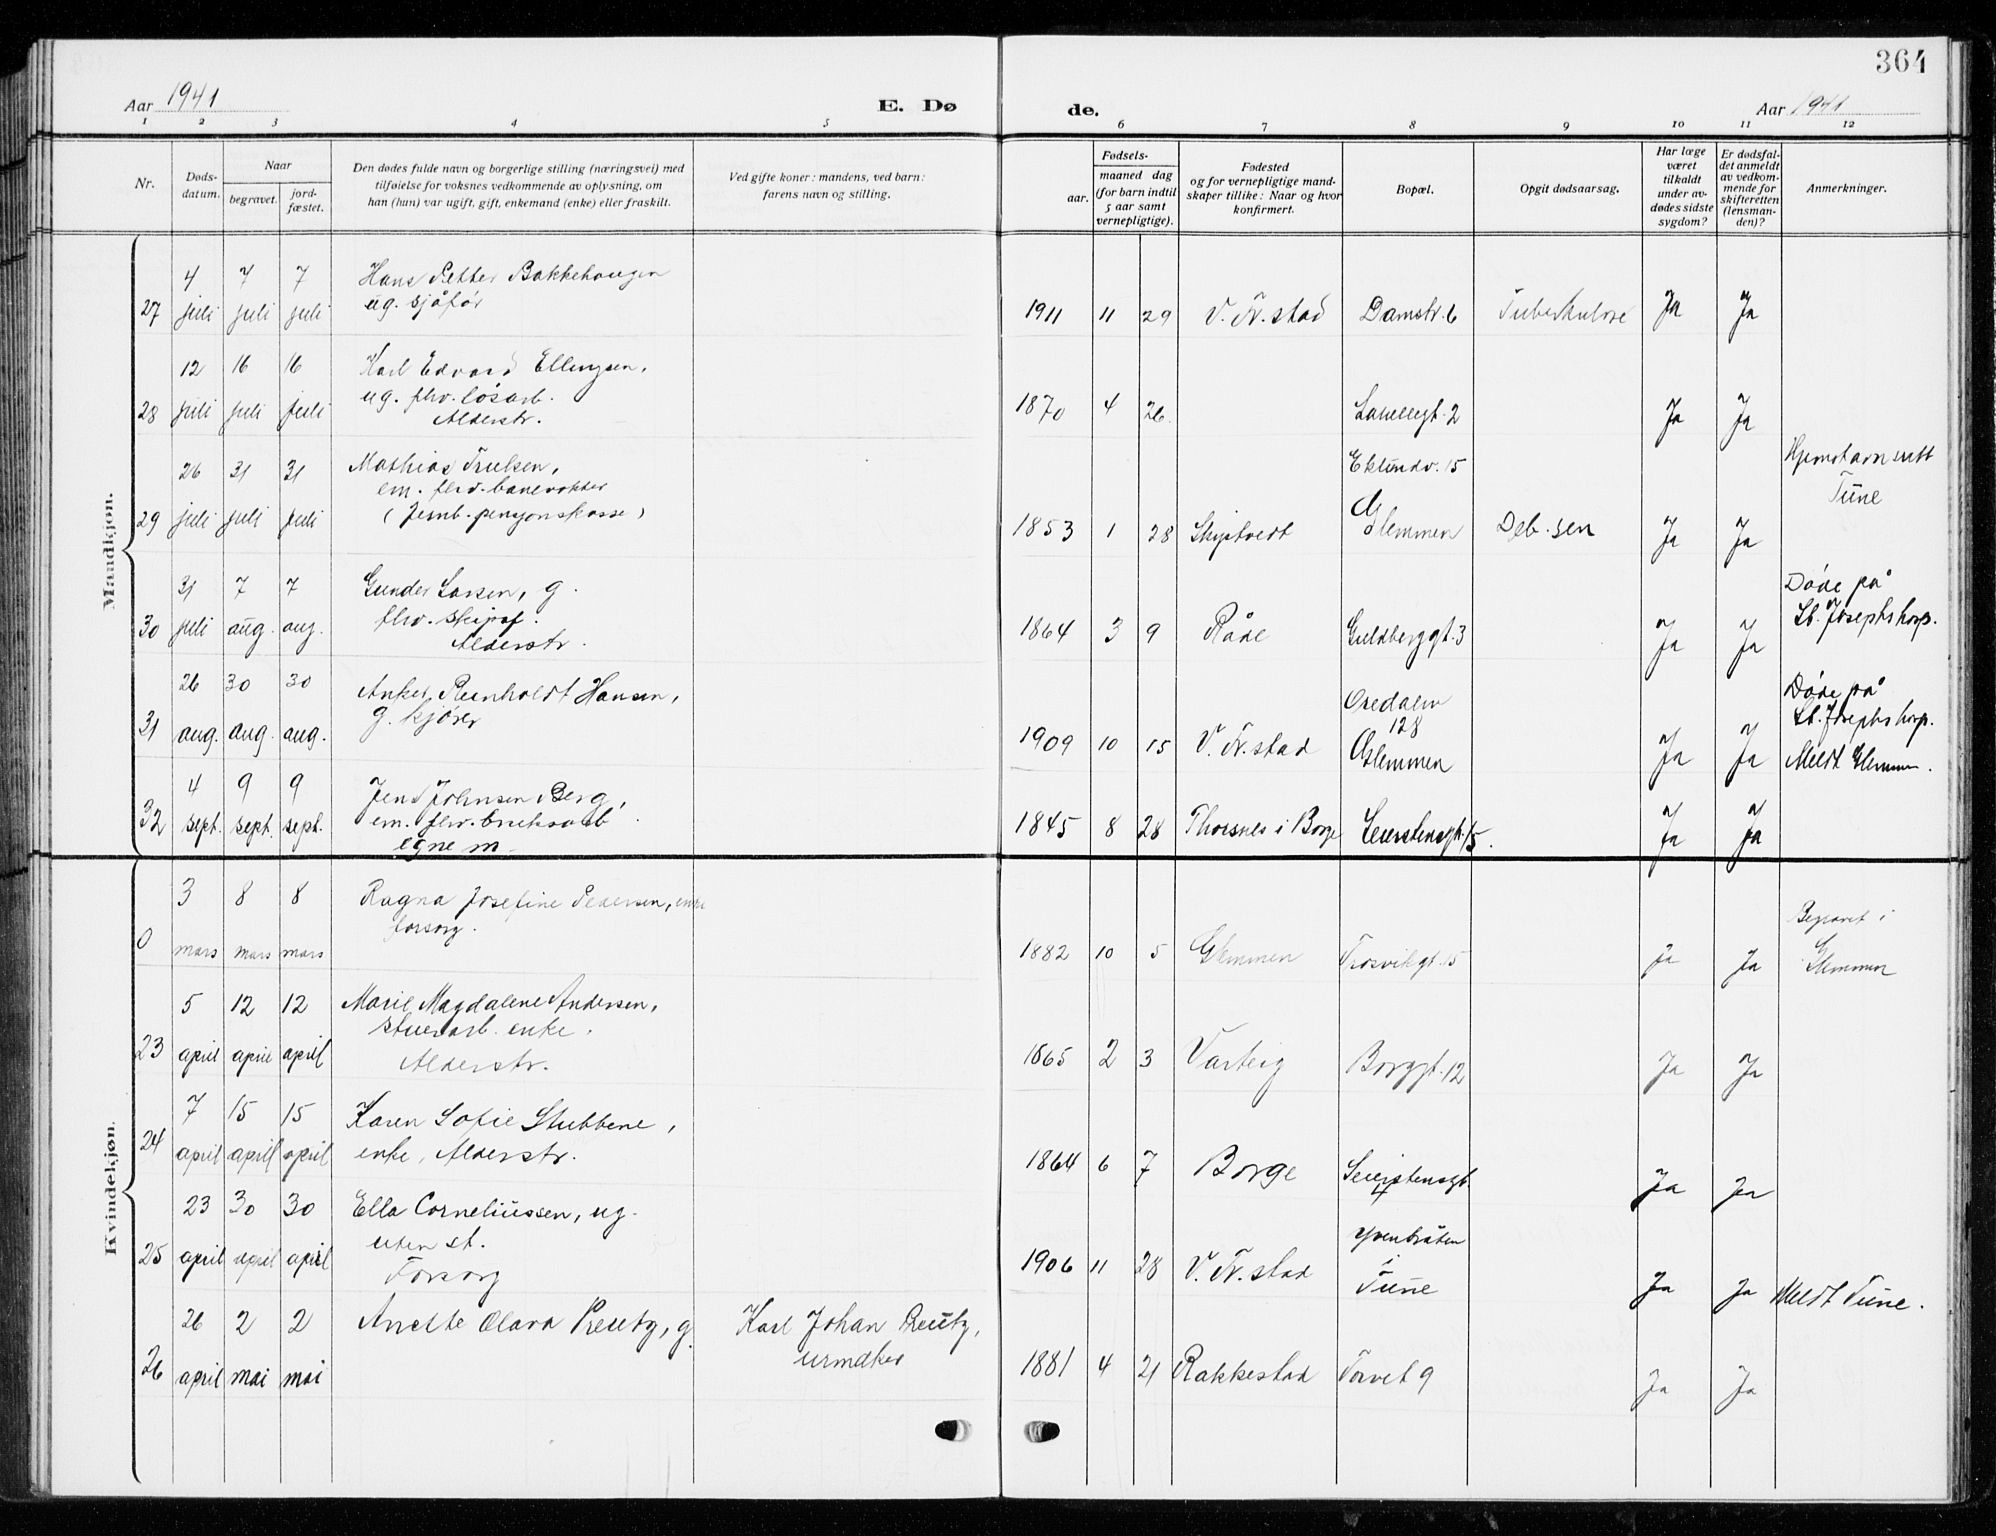 364
Aar 1941
E. Dø
de.
Aar 1941
1 2 3 4 5 6 7 8 9 10 11 12
Nr.
Døds-
datum.
Naar
begravet.
jord-
fæstet.
Den dødes fulde navn og borgerlige stilling (næringsvei) med
tilføielse for voksnes vedkommende av oplysning, om
han (hun) var ugift, gift, enkemand (enke) eller fraskilt.
Ved gifte koner: mandens, ved barn:
farens navn og stilling.
aar.
Fødsels-
maaned dag
(for barn indtil
5 aar samt
vernepligtige).
Fødested
og for vernepligtige mand-
skaper tillike: Naar og hvor
konfirmert.
Bopæl.
Opgit dødsaarsag.
Har læge
været
tilkaldt
under av-
dødes sidste
sygdom?
Er dødsfal-
det anmeldt
av vedkom-
mende for
skifteretten
(lensman-
den)?
Anmerkninger.
Mandkjøn.
4 7 7 Hans Petter Bakkehaugen
27 juli juli juli ug. sjåfør
1911 11 29 V. Fr.stad Damstr. 6 Tuberkulose Ja Ja
12 16 16 Karl Edvard Ellingsen,
28 juli juli juli ug. fhv. løsarb.
Alderstr.
1870 4 26 2 Ja Ja
26 31 31 Mathias Trulsen,
em. fhv. banevokter
29 juli juli juli (Jernb. pensjonskasse)
Eklundv. 15
1853 1 28 Skiptvedt Glemmen Deb. sen Ja Ja
Hjemstavnsrett
Tune
31 7 7 Gunder Larsen, g.
30 juli aug. aug. fhv. skipsf.
Alderstr.
1864 3 9 Råde Guldberggt. 3 Ja Ja
Døde på
St. Josephs hosp.
26 30 30 Anker Reinholdt Hansen,
31 aug. aug. aug. g. kjører
Oredalen
128
1909 10 15 V. Fr.stad Glemmen Ja Ja
Døde på
St. Josephs hosp.
Meldt Glemmen.
4 9 9 Jens Johnsen Berg,
32 sept. sept. sept. em. fhv. bruksarb
egne m.
1845 8 28 Thorsnes i Borge Seierstensgt. 15. Ja Ja
Kvindekjøn.
3 8 8 Ragna Josefine Pedersen, enke
0 mars mars mars forsorg.
1882 10 5 Glemmen Trosvikgt. 15 Ja Ja
Begravet i
Glemmen
5 12 12 Marie Magdalene Andersen,
stuerarb. enke.
23 april april april Alderstr.
1865 2 3 Varteig Borggt. 12 Ja Ja
7 15 15 Karen Sofie Stubbene,
24 april april april enke, Alderstr.
1864 6 7 Borge Seierstensgt.
4 Ja Ja
23 30 30 Ella Corneliussen, ug.
uten st.
25 april april april Forsorg
i
1906 11 28 V. Fr.stad Tune Ja Ja Meldt Tune.
26 2 2 Anette Olava Preutz, g. Karl Johan Preutz,
urmaker
26 april mai mai
1881 4 21 Rakkestad Torvet 9 Ja Ja